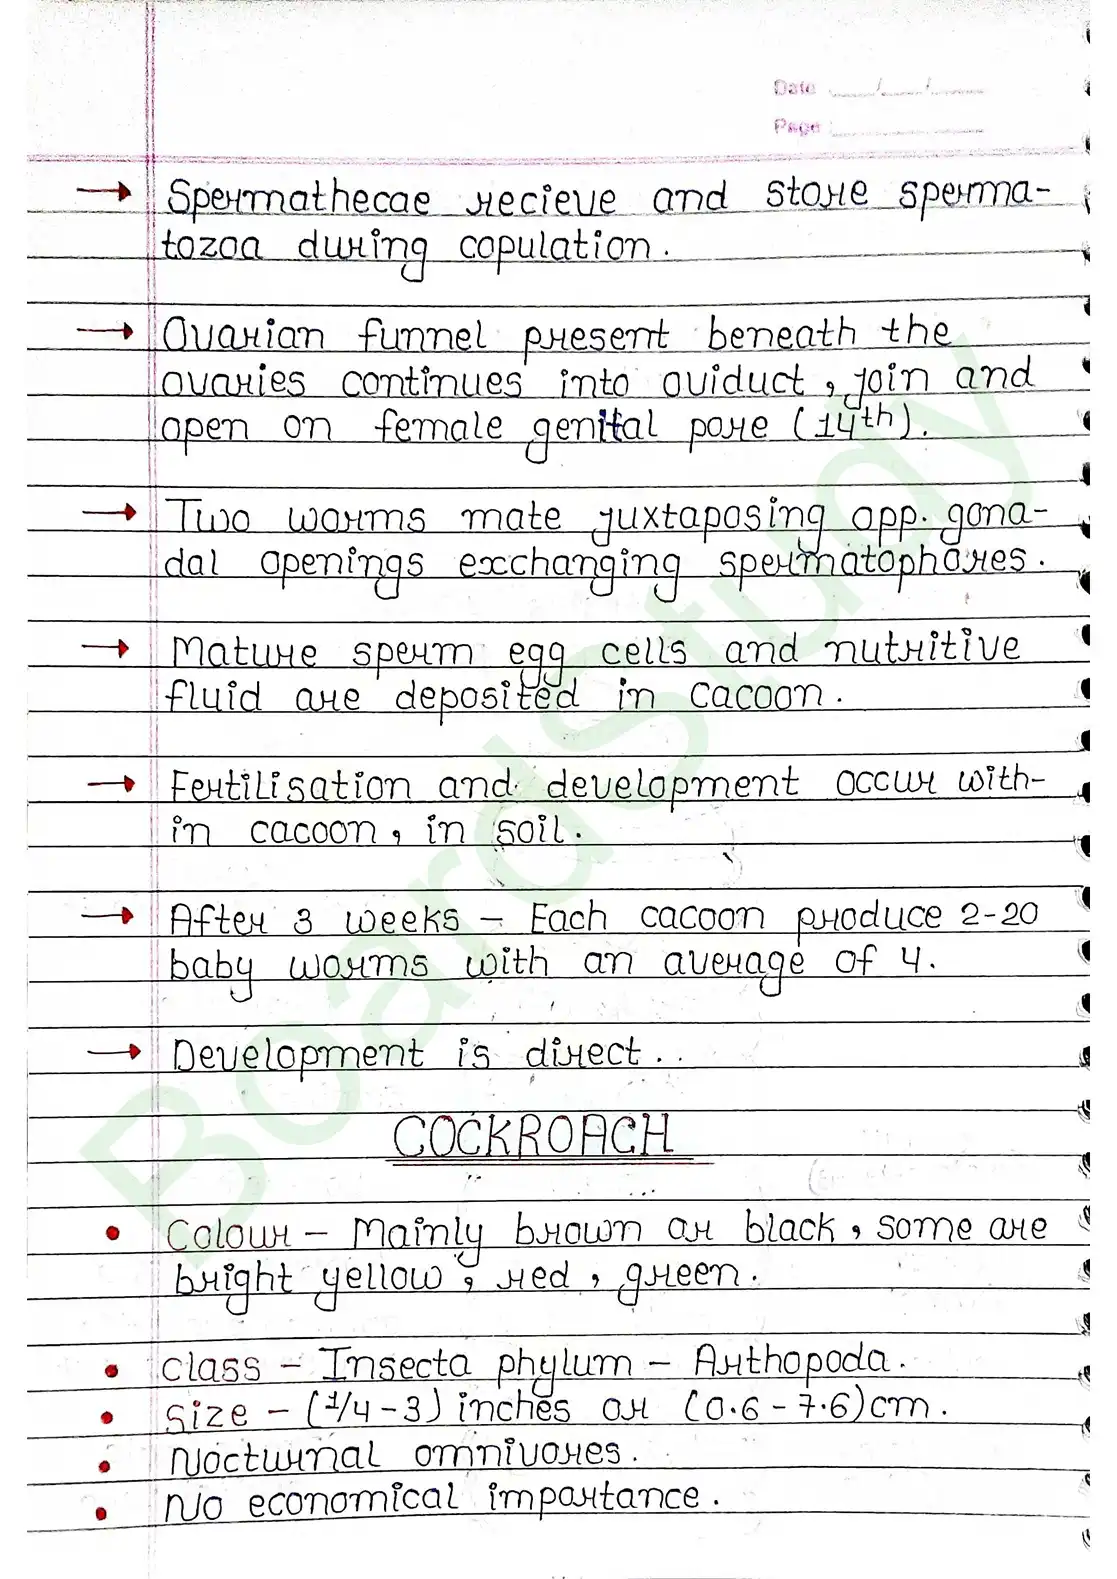 Date ___/___/___
Page
→ Spermathecae recieve and store sperma-
tozoa during copulation.
→ Ovarian funnel present beneath the
ovaries continues into oviduct, join and
open on female genital pore (14th).
→ Two worms mate juxtaposing opp. gona-
dal openings exchanging spermatophores.
→ Mature sperm egg cells and nutritive
fluid are deposited in cacoon.
→ Fertilisation and development occur with-
in cacoon, in soil.
→ After 3 weeks – Each cacoon produce 2-20
baby worms with an average of 4.
→ Development is direct..
COCKROACH
• Colour – Mainly brown or black, some are
bright yellow, red, green.
• Class – Insecta phylum – Arthopoda.
• Size – (1/4 – 3) inches or (0.6 – 7.6) cm.
• Nocturnal omnivores.
• No economical importance.
BoardStudy